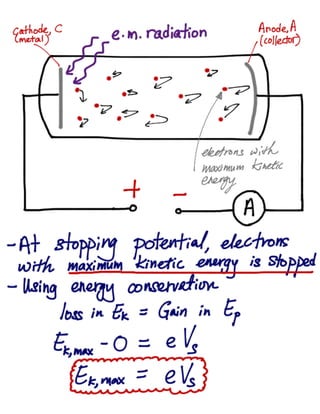 Cathode, C
(metal)
e.m. radiation
Anode, A
(collector)
electrons with
maximum kinetic
energy
+ -
A
- At stopping potential, electrons
with maximum kinetic energy is stopped
- Using energy conservation
loss in Ek = Gain in Ep
Ek,max - 0 = eVs
Ek,max = eVs